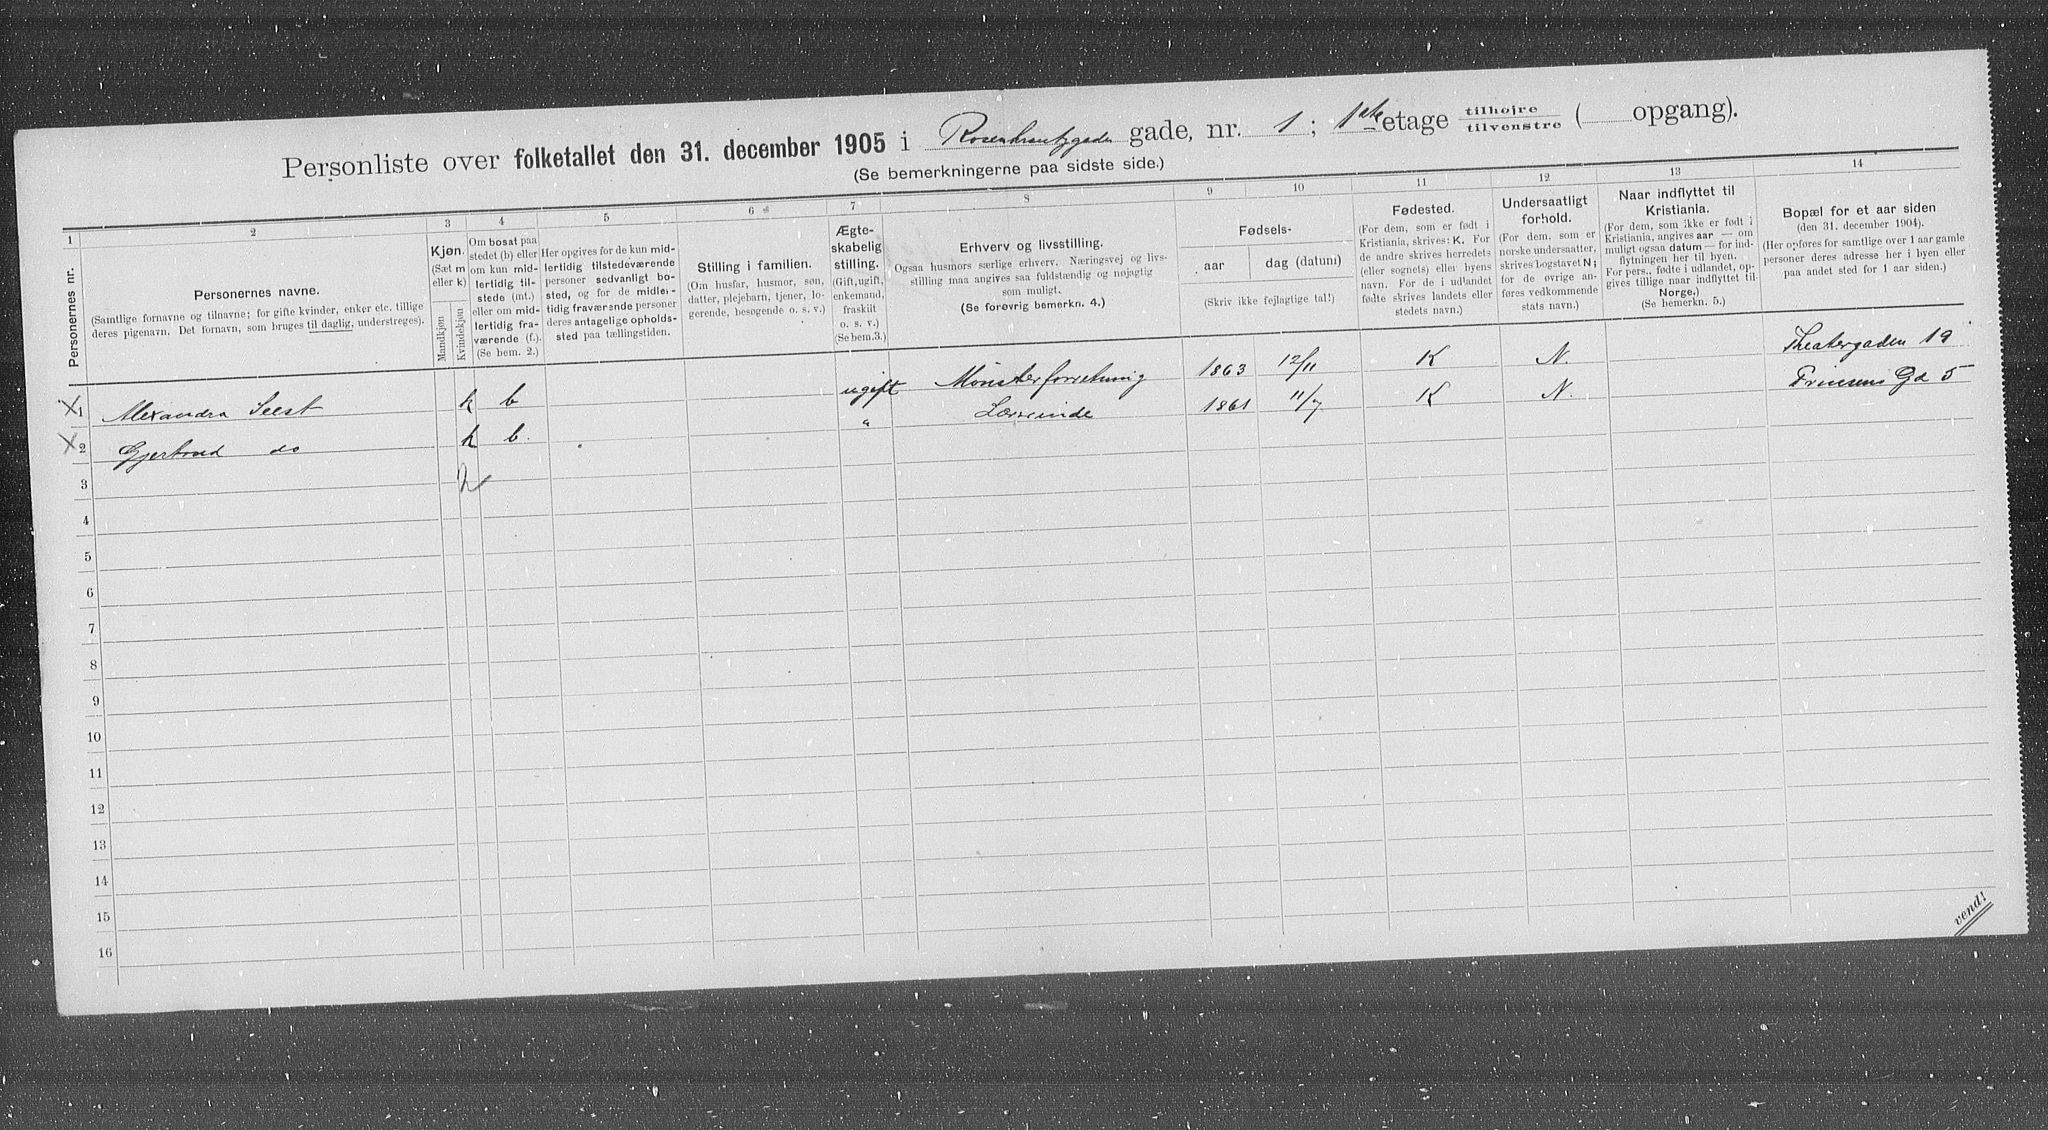 Personliste over folketallet den 31. december 1905 i Rosenkrantzgaden gade, nr. 1; 1ste etage tilhøjre / tilvenstre ( opgang).
(Se bemerkningerne paa sidste side.)
1 2 3 4 5 6 7 8 9 10 11 12 13 14
Personernes nr.
Personernes navne.
(Samtlige fornavne og tilnavne; for gifte kvinder, enker etc. tillige
deres pigenavn. Det fornavn, som bruges til daglig, understreges).
Kjøn.
(Sæt m
eller k)
Mandkjøn
Kvindekjøn
Om bosat paa
stedet (b) eller
om kun mid-
lertidig til-
stede (mt.)
eller om mid-
lertidig fra-
værende (f.).
(Se bem. 2.)
Her opgives for de kun mid-
lertidig tilstedeværende
personer sedvanligt bo-
sted, og for de midler-
tidig fraværende personer
deres antagelige opholds-
sted paa tællingstiden.
Stilling i familien.
(Om husfar, husmor, søn,
datter, plejebarn, tjener, lo-
gerende, besøgende o. s. v.)
Ægte-
skabelig
stilling.
(Gift, ugift,
enkemand,
fraskilt
o. s. v.)
(Se bem. 3.)
Erhverv og livsstilling.
Ogsaa husmors særlige erhverv. Næringsvej og livs-
stilling maa angives saa fuldstændig og nøjagtig
som muligt.
(Se forøvrig bemerkn. 4.)
Fødsels-
aar
dag (datum)
(Skriv ikke fejlagtige tal!)
Fødested.
(For dem, som er født i
Kristiania, skrives: K. For
de andre skrives herredets
(eller sognets) eller byens
navn. For de i udlandet
fødte skrives landets eller
stedets navn.)
Undersaatligt
forhold.
(For dem, som er
norske undersaatter,
skrives bogstavet N;
for de øvrige an-
føres vedkommende
stats navn.)
Naar indflyttet til
Kristiania.
(For dem, som ikke er født i
Kristiania, angives aar — om
muligt ogsaa datum — for ind-
flytningen her til byen.
For pers., fødte i udlandet, op-
gives tillige naar indflyttet til
Norge.)
(Se bemerkn. 5.)
Bopæl for et aar siden
(den 31. december 1904).
(Her opføres for samtlige over 1 aar gamle
personer deres adresse her i byen eller
paa andet sted for 1 aar siden.)
X 1 Alexandra Seest k b ugift Mønsterforretning 1863 12/11 K N. Theatergaden 19
X 2 Gjertrud do k b. " Lærerinde 1861 11/7 K N. Prinsens Gd 5
3
4
5
6
7
8
9
10
11
12
13
14
15
16
vend!